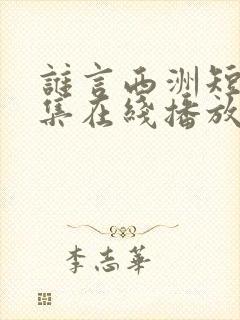 誰言西洲短
集在綫播放
李志華